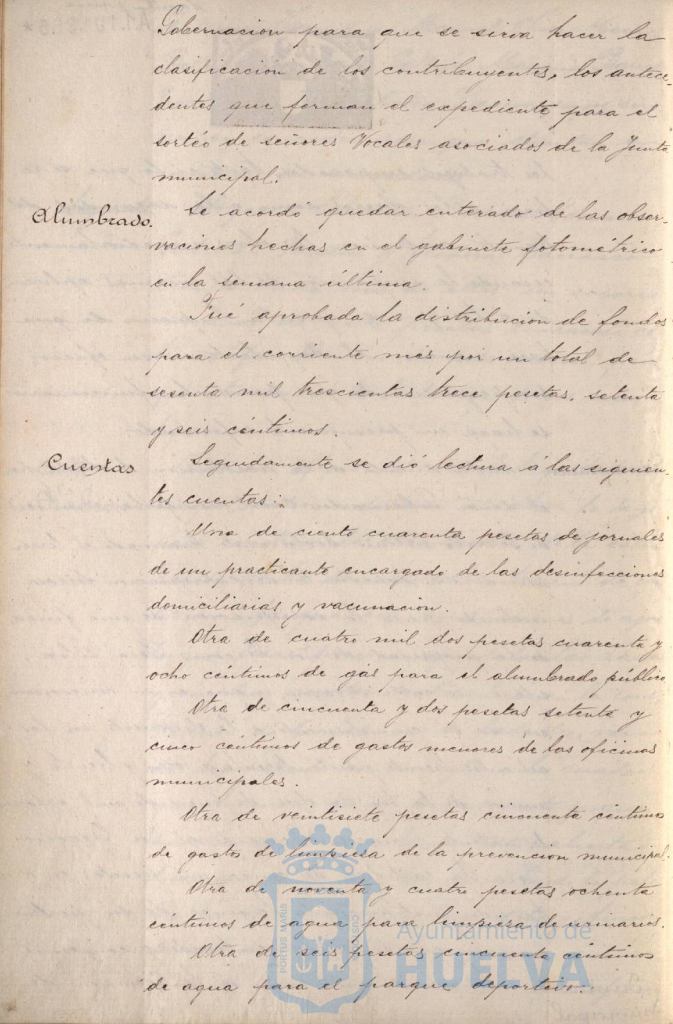 Gobernacion para que se sirva hacer la
clasificacion de los contribuyentes, los antece-
dentes que forman el expediente para el
sorteo de señores Vocales asociados de la Junta
municipal.
Alumbrado. Se acordó quedar enterado de las obser-
vaciones hechas en el gabinete fotométrico
en la semana última.
Fué aprobada la distribucion de fondos
para el corriente mes por un total de
sesenta mil trescientas trece pesetas, setenta
y seis céntimos.
Cuentas Seguidamente se dió lectura á las siguien-
tes cuentas:
Una de ciento cuarenta pesetas de jornales
de un practicante encargado de las desinfecciones
domiciliarias y vacunacion.
Otra de cuatro mil dos pesetas cuarenta y
ocho céntimos de gás para el alumbrado público
Otra de cincuenta y dos pesetas setenta y
cinco céntimos de gastos menores de las oficinas
municipales.
Otra de veintisiete pesetas cincuenta céntimos
de gastos de limpieza de la prevencion municipal.
Otra de noventa y cuatro pesetas ochenta
céntimos de agua para limpieza de urinarios.
Otra de seis pesetas cincuenta céntimos
de agua para el parque deportivo.
Ayuntamiento de
HUELVA